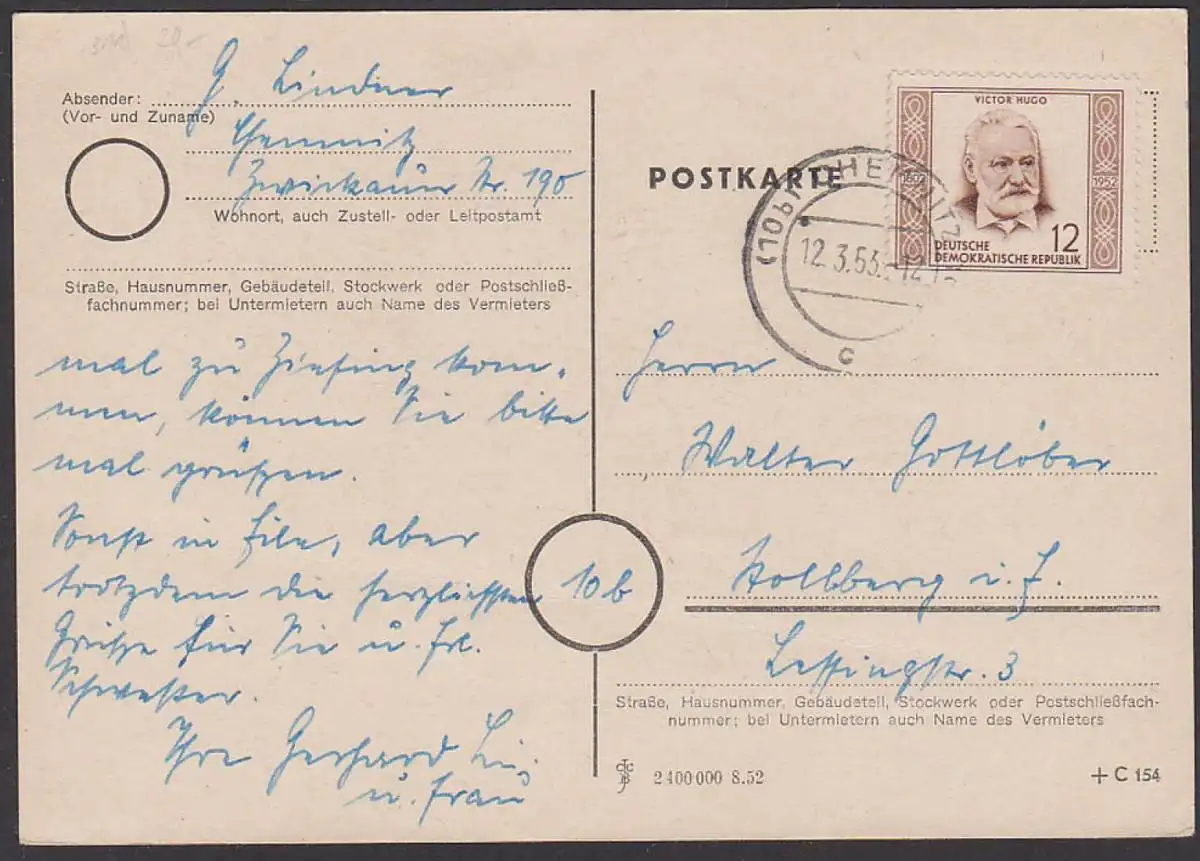 G. Lindner
Absender:
(Vor- und Zuname)
Chemnitz
Zwickauer Str. 190
Wohnort, auch Zustell- oder Leitpostamt
Straße, Hausnummer, Gebäudeteil, Stockwerk oder Postschließ-
fachnummer; bei Untermietern auch Name des Vermieters
mal zu Ziefing kom-
men, können Sie bitte
mal grüßen.
Sonst in Eile, aber
trotzdem die herzlichsten
Grüße für Sie u. Frl.
Schwester.
Ihre Gerhard Li.
u. Frau
POSTKARTE
VICTOR HUGO
1802
1952
12
DEUTSCHE
DEMOKRATISCHE REPUBLIK
(10b) CHEMNITZ
12.3.53.-12
c
Herrn
Walter Gottlöber
10b
Stollberg i. E.
Lessingstr. 3
Straße, Hausnummer, Gebäudeteil, Stockwerk oder Postschließfach-
nummer; bei Untermietern auch Name des Vermieters
2400000 8.52
+ C 154